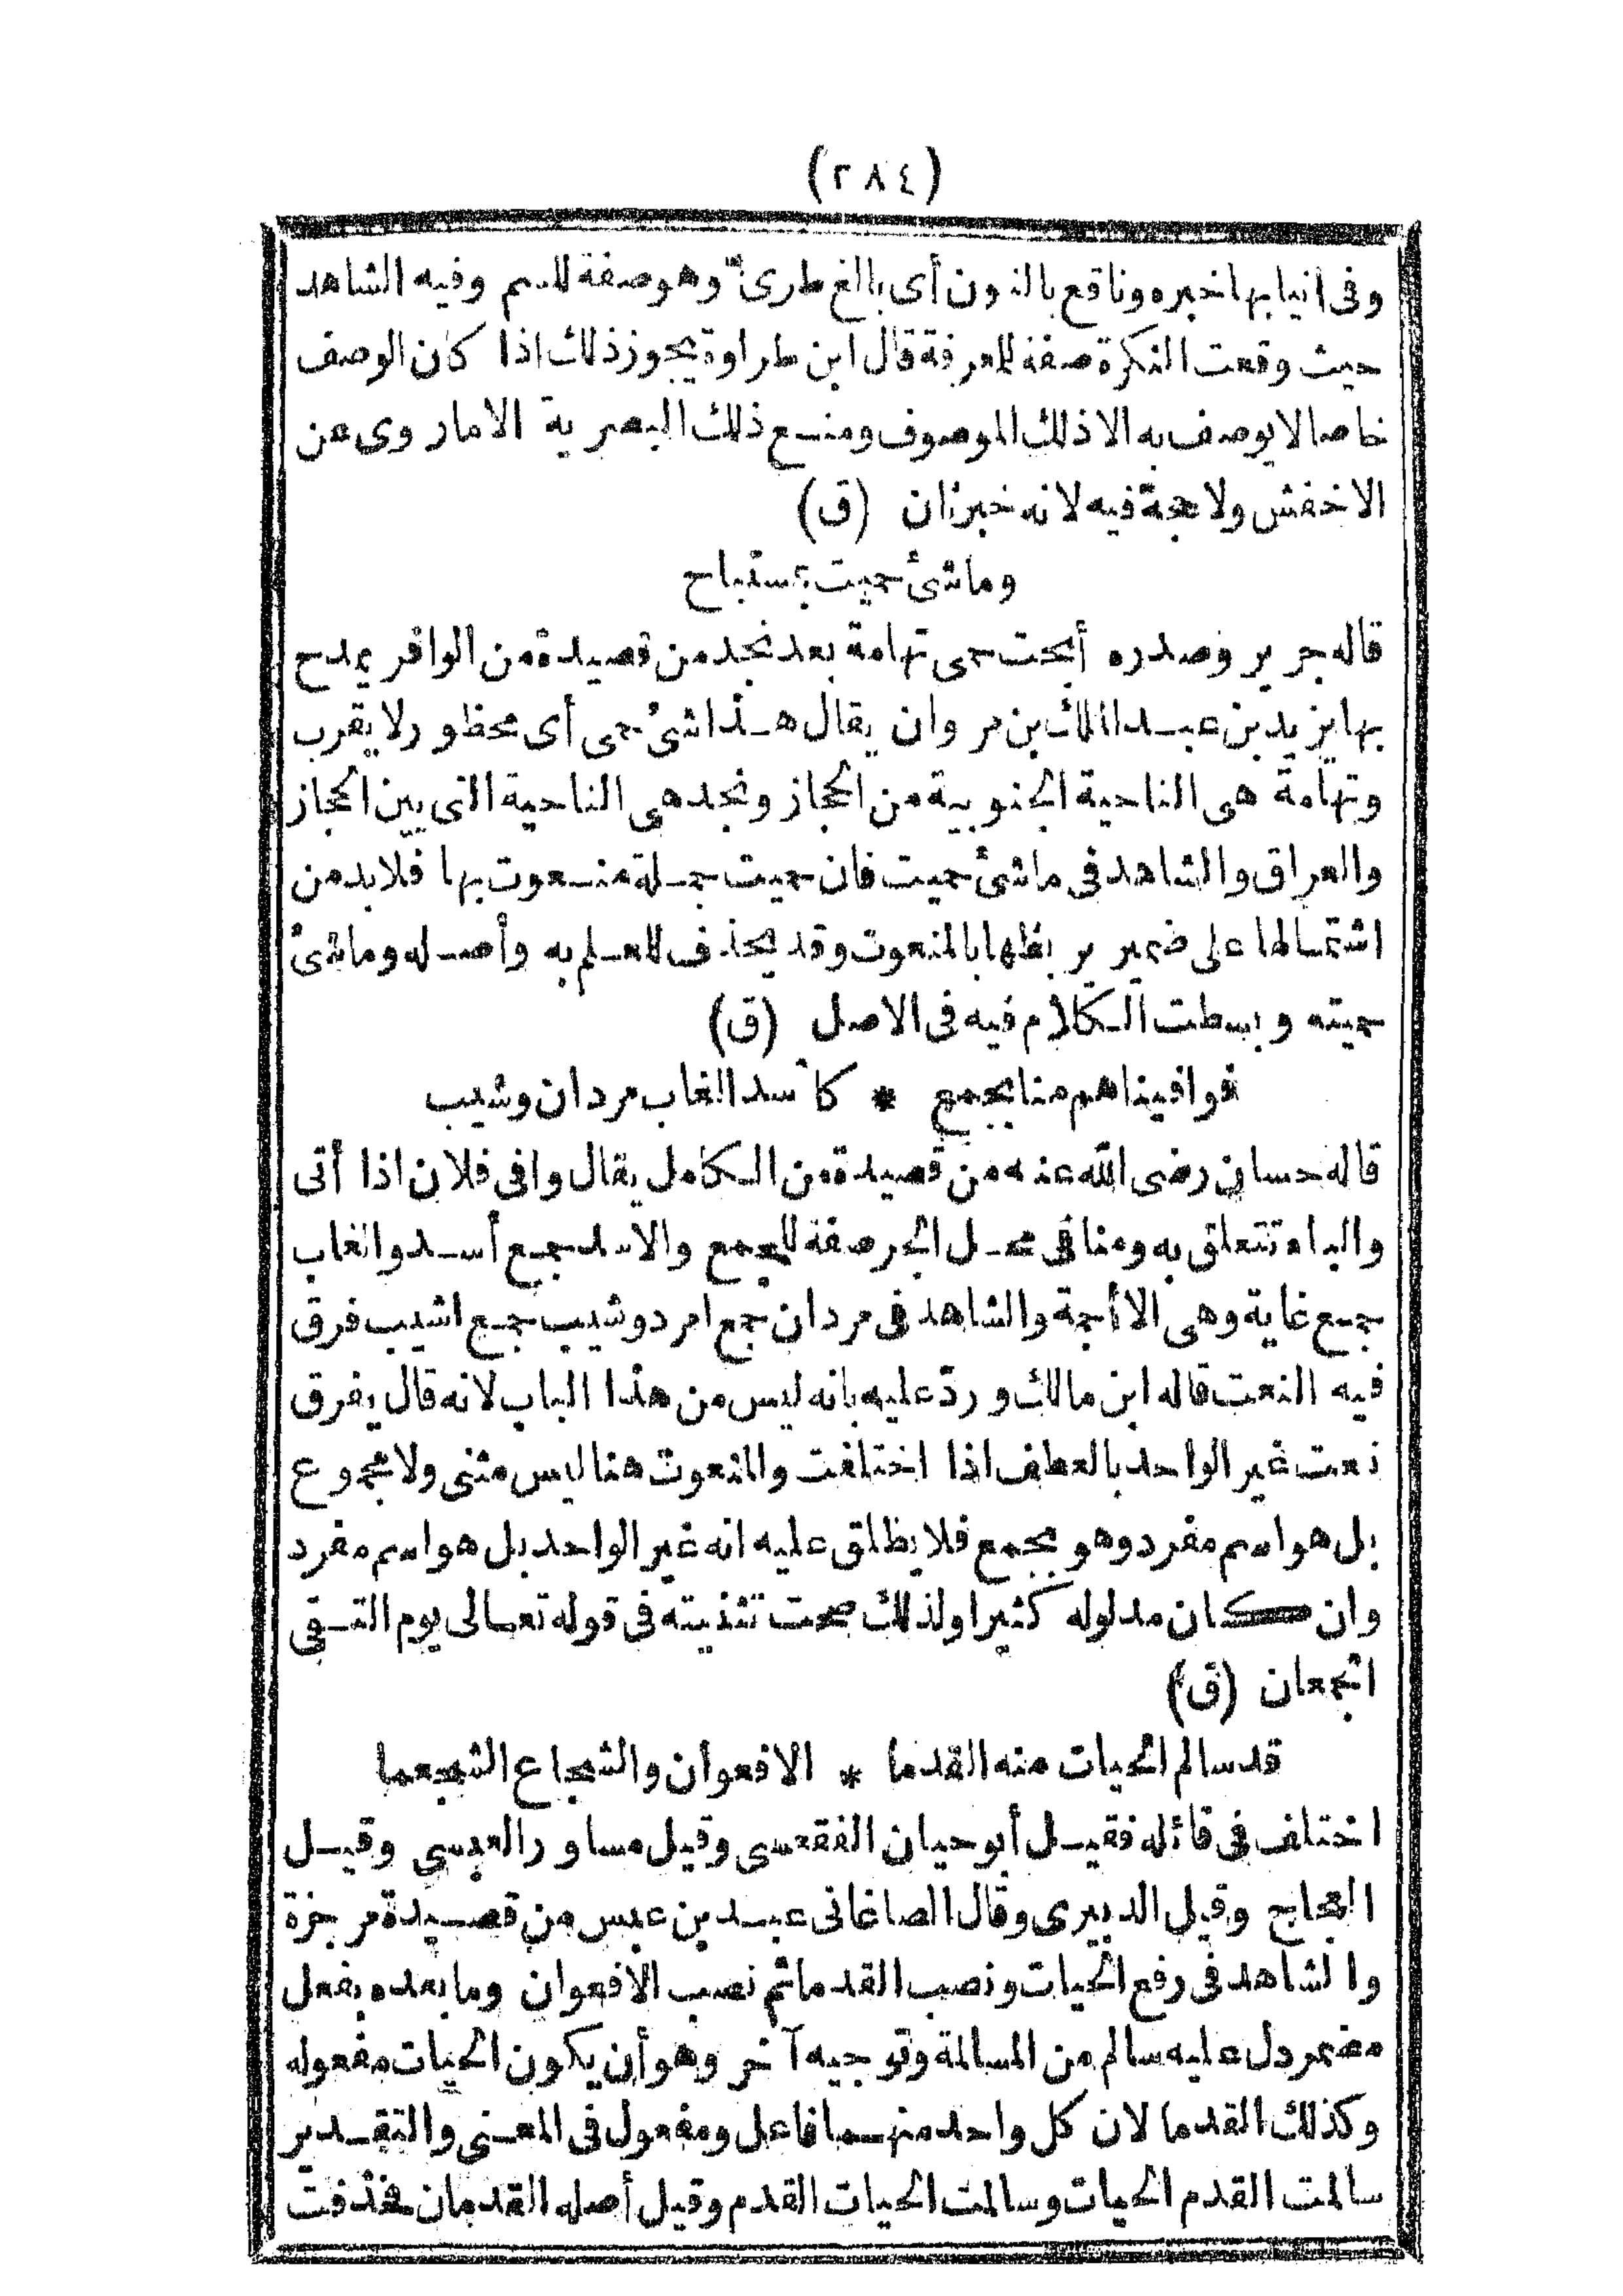 (٢٨٤)
وفى انيابها خبره وناقع بالنون أى بالغ طرىّ وهو صفة للسم وفيه الشاهد
حيث وقعت النكرة صفة للمعرفة قال ابن طراوة يجوز ذلك اذا كان الوصف
خاصا لا يوصف به الا ذلك الموصوف ومنع ذلك البصرية الا ما روى عن
الاخفش ولا حجة فيه لانه خبر ثان (ق)
وما شئ حميت بمستباح
قاله جرير وصدره أبحت حمى تهامة بعد نجد من قصيدة من الوافر يمدح
بها يزيد بن عبد الملك بن مروان يقال هذا شئ حمى أى محظور لا يقرب
وتهامة هى الناحية الجنوبية من الحجاز ونجد هى الناحية التى بين الحجاز
والعراق والشاهد فى ما شئ حميت فان حميت جملة منعوت بها فلا بد من
اشتمالها على ضمير يربطها بالمنعوت وقد يحذف للعلم به وأصله وما شئ
حميته وبسطت الكلام فيه فى الاصل (ق)
فوافيناهم منا بجمع * كأسد الغاب مردان وشيب
قاله حسان رضى الله عنه من قصيدة من الكامل يقال وافى فلان اذا أتى
والباء تتعلق به ومنا فى محل الجر صفة للجمع والاسد جمع أسد والغاب
جمع غابة وهى الاأجمة والشاهد فى مردان جمع امرد وشيب جمع اشيب فرق
فيه النعت قاله ابن مالك وردّ عليه بانه ليس من هذا الباب لانه قال يفرق
نعت غير الواحد بالعطف اذا اختلفت والمنعوت هنا ليس مثنى ولا مجموع
بل هو اسم مفرد وهو بجمع فلا يطلق عليه انه غير الواحد بل هو اسم مفرد
وان كان مدلوله كثيرا ولذلك صحت تثنيته فى قوله تعالى يوم التقى
الجمعان (ق)
قد سالم الحيات منه القدما * الافعوان والشجاع الشجعما
اختلف فى قائله فقيل أبو حيان الفقعسى وقيل مساور العبسى وقيل
العجاج وقيل الدبيرى وقال الصاغانى عبد بن عبس من قصيدة مرجزة
والشاهد فى رفع الحيات ونصب القدما ثم نصب الافعوان وما بعده بفعل
مضمر دل عليه سالم من المسالمة وتوجيه آخر وهو أن يكون الحيات مفعوله
وكذلك القدما لان كل واحد منهما فاعل ومفعول فى المعنى والتقدير
سالمت القدم الحيات وسالمت الحيات القدم وقيل أصله القدمان فحذفت